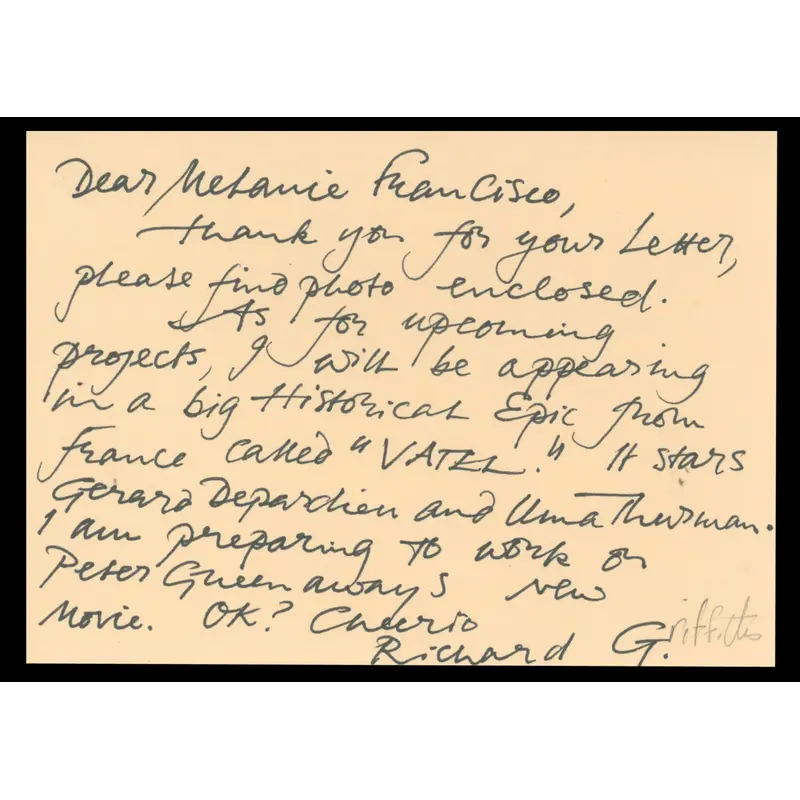 Dear Melanie Francisco,
thank you for your Letter,
please find photo enclosed.
As for upcoming
projects, I will be appearing
in a big Historical Epic from
France called "VATEL." It stars
Gerard Depardieu and Uma Thurman.
I am preparing to work on
Peter Greenaways new
Movie. OK? Cheerio
Richard G.riffiths